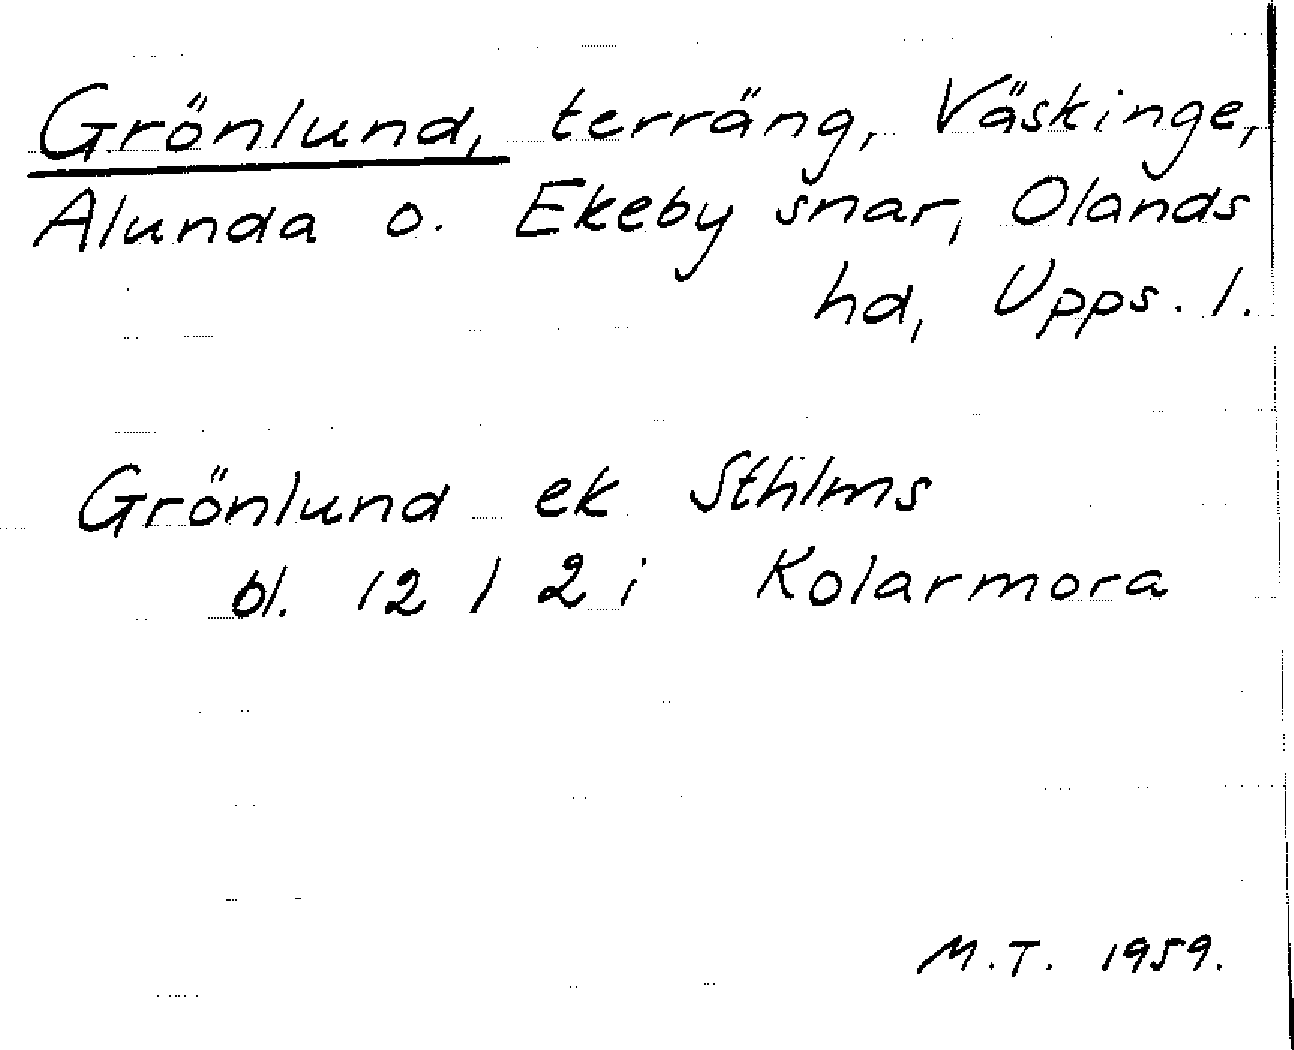 Grönlund, terräng, Väskinge,
Alunda o. Ekeby snar, Olands
hd, Upps. l.
Grönlund ek Sthlms
bl. 12 / 2 i Kolarmora
M.T. 1959.